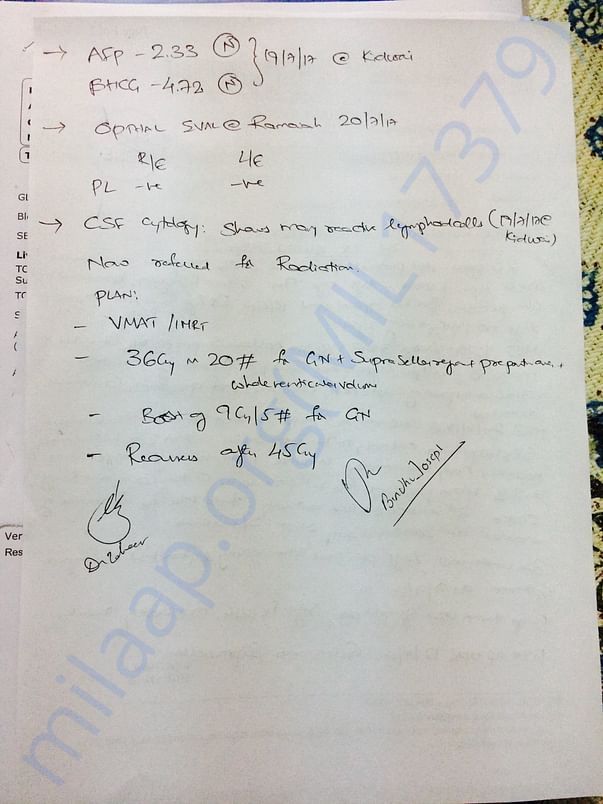 → AFP - 2.33 (N) } 19/7/17 @ Kidwai
BHCG - 4.72 (N)
→ OPTHAL EVAL @ Ramaiah 20/7/17
R/E L/E
PL -ve -ve
→ CSF cytology: Shows many reactive lymphoid cells (19/7/17 @ Kidwai)
Now referred for Radiation.
PLAN:
- VMAT / IMRT
- 36Gy in 20# for + Suprasellar region +
whole ventricular volume
- Boost of 9Gy/5# for
- Reassess after 45Gy
Bindhu Joseph
Dr Zaheer
GL
Bl
SE
Li
TO
Su
TO
Ver
Res
milaap.org(MIL17379